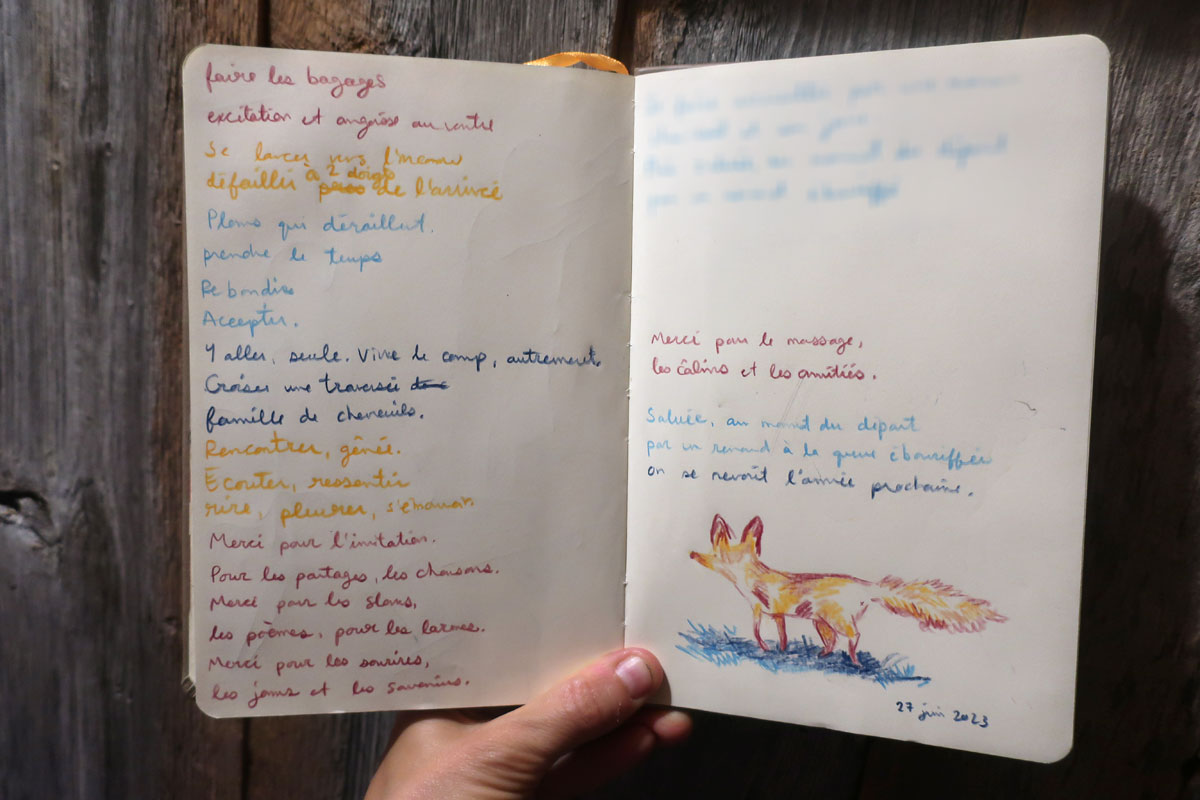 faire les bagages
excitation et angoisse au ventre
Se lancer vers l'inconnu
défaillir à 2 doigts de l'arrivée
Plans qui déraillent.
prendre le temps
Rebondir
Accepter.
Y aller, seule. Vivre le camp, autrement.
Croiser une traversée
famille de chevreuils.
Rencontrer, gênée.
Écouter, ressentir
rire, pleurer, s'émouvoir
Merci pour l'invitation.
Pour les partages, les chansons.
Merci pour les slams,
les poèmes, pour les larmes.
Merci pour les sourires,
les jams et les
Merci pour le massage,
les câlins et les amitiés.
Saluée, au moment du départ
par un renard à la queue ébouriffée
on se revoit l'année prochaine.
27 juin 2023